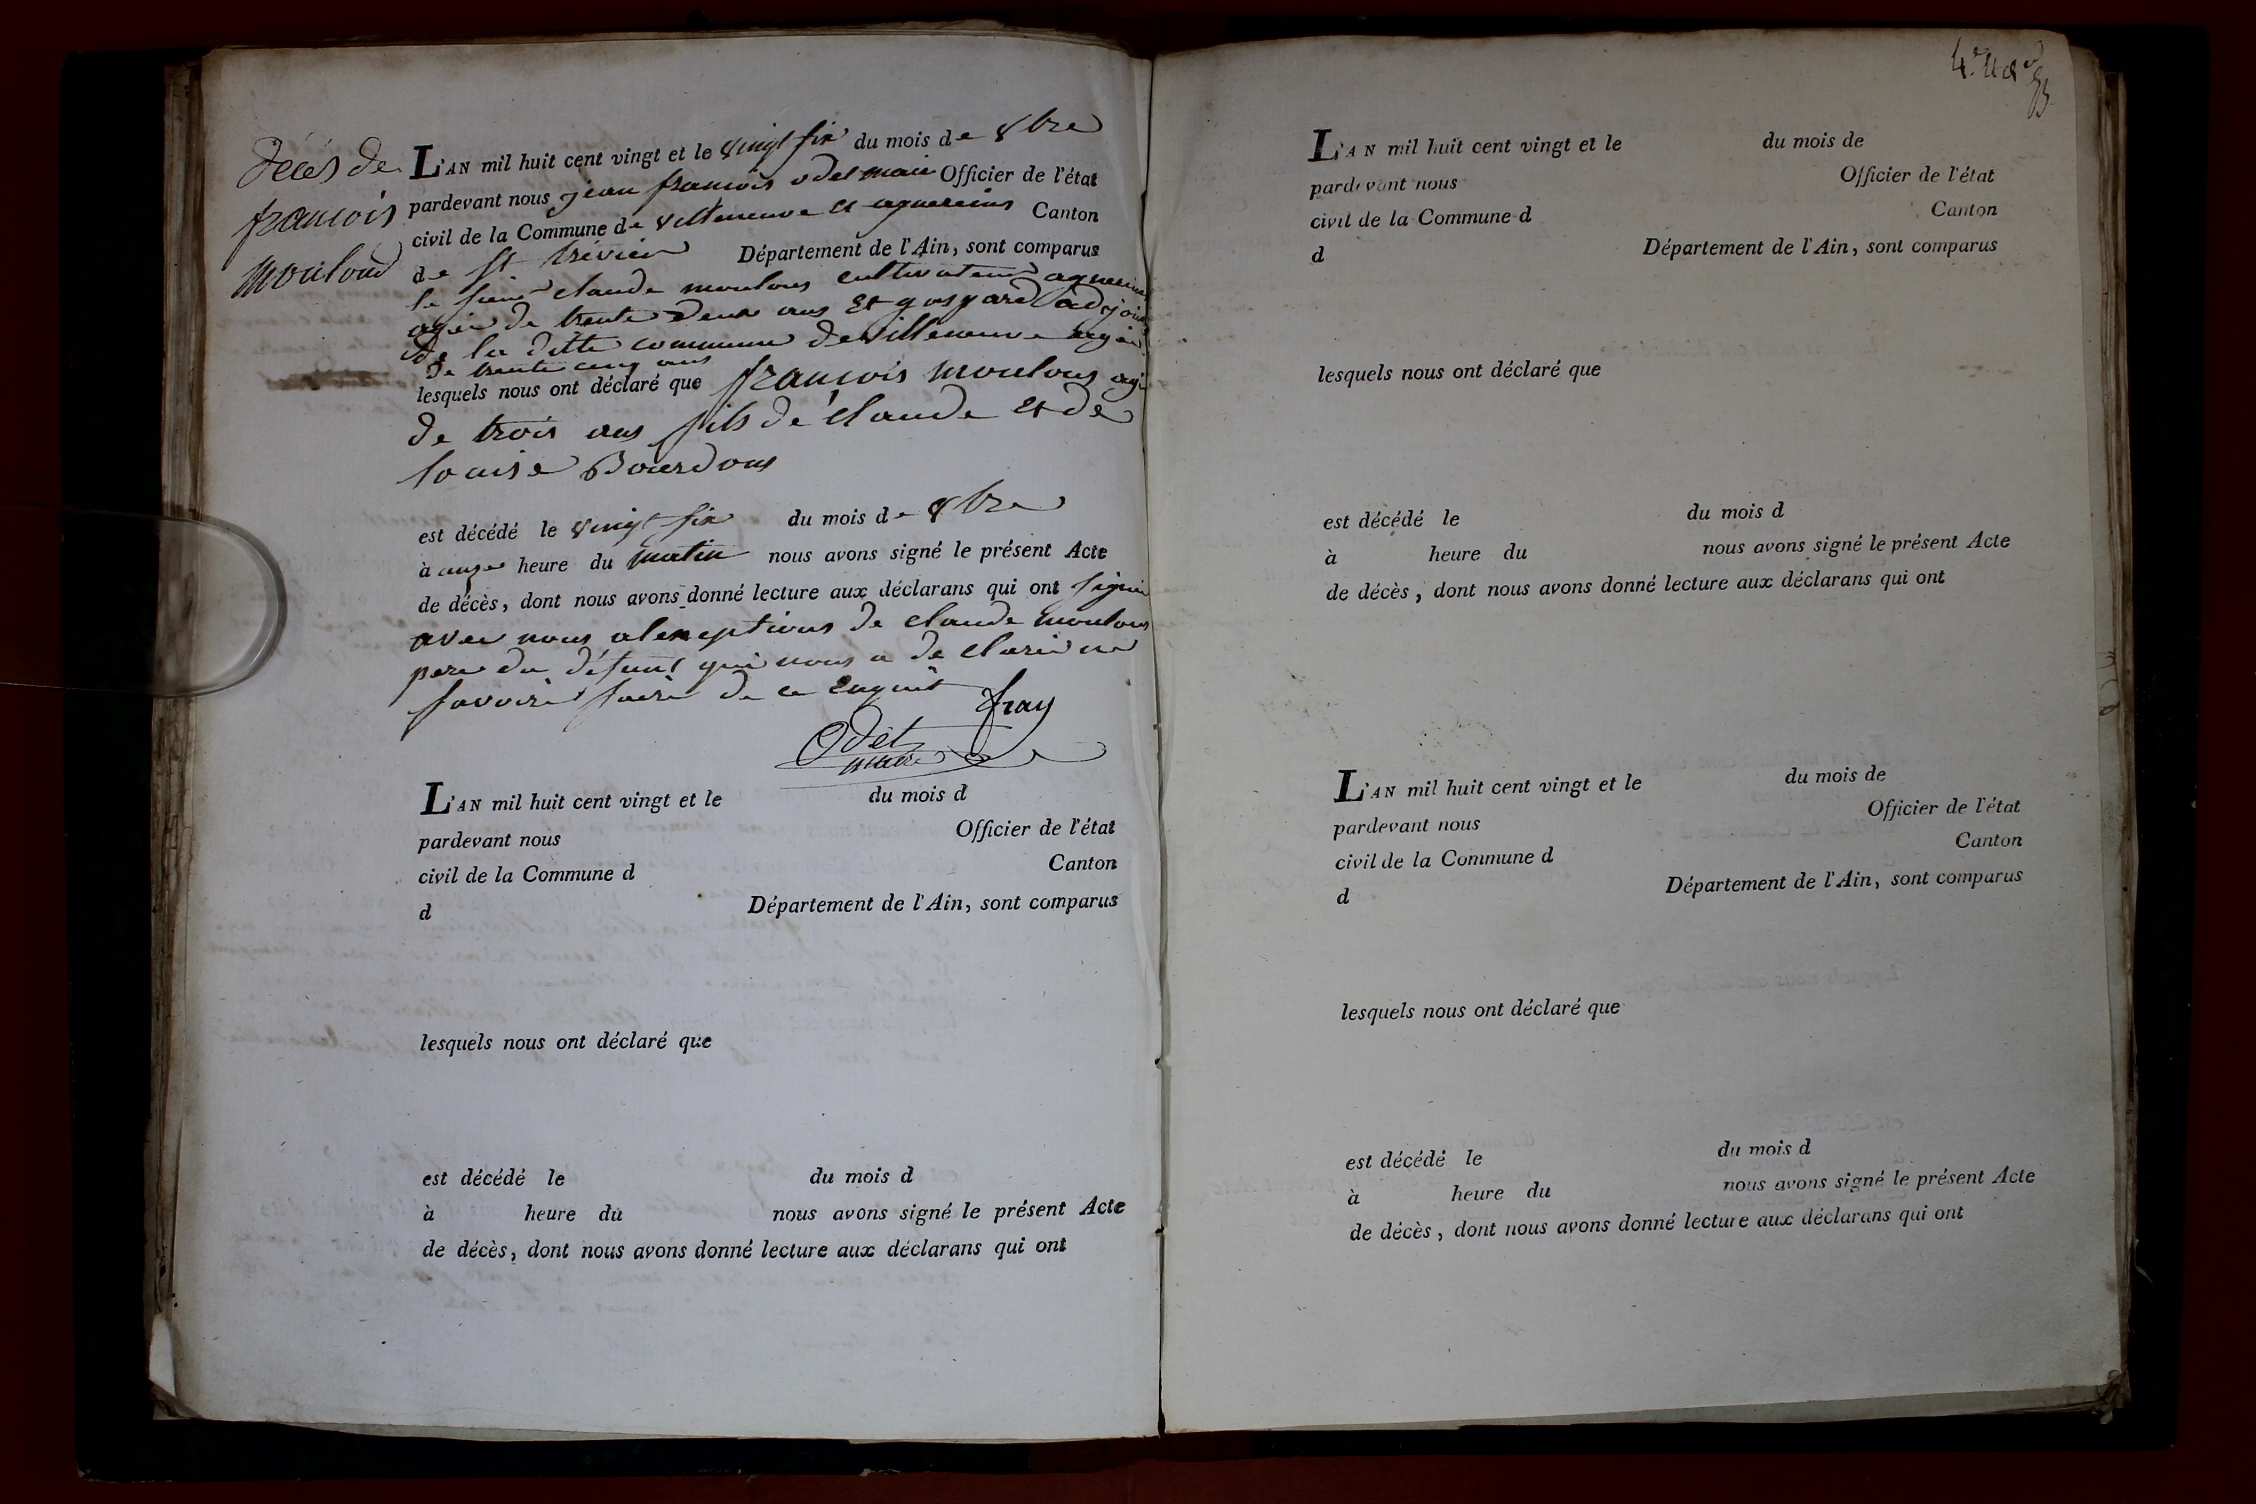 Décès de
francois
Moulond
L'AN mil huit cent vingt et le vingt six du mois de 8bre
pardevant nous jean francois odet maire Officier de l'état
civil de la Commune de villeneuve et agnereins Canton
de St trévier Département de l'Ain, sont comparus
le sieur claude moulons cultivateur agnereins
agée de trente deux ans et gaspard adjoint
de la ditte commune de villeneuve agée
de trente cinq ans
lesquels nous ont déclaré que francois moulons agé
de trois ans fils de claude et de
louise Bourdons
est décédé le vingt six du mois de 8bre
à onze heure du matin nous avons signé le présent Acte
de décès, dont nous avons donné lecture aux déclarans qui ont signée
avec nous al exeptions de claude moulons
pere du défunt qui nous a de clarée ne
savoire faire de ce enquit
fray
Odet
maire
L'AN mil huit cent vingt et le du mois d
pardevant nous Officier de l'état
civil de la Commune d Canton
d Département de l'Ain, sont comparus
lesquels nous ont déclaré que
est décédé le du mois d
à heure du nous avons signé le présent Acte
de décès, dont nous avons donné lecture aux déclarans qui ont
L'AN mil huit cent vingt et le du mois de
pardevant nous Officier de l'état
civil de la Commune d Canton
d Département de l'Ain, sont comparus
lesquels nous ont déclaré que
est décédé le du mois d
à heure du nous avons signé le présent Acte
de décès, dont nous avons donné lecture aux déclarans qui ont
L'AN mil huit cent vingt et le du mois de
pardevant nous Officier de l'état
civil de la Commune d Canton
d Département de l'Ain, sont comparus
lesquels nous ont déclaré que
est décédé le du mois d
à heure du nous avons signé le présent Acte
de décès, dont nous avons donné lecture aux déclarans qui ont